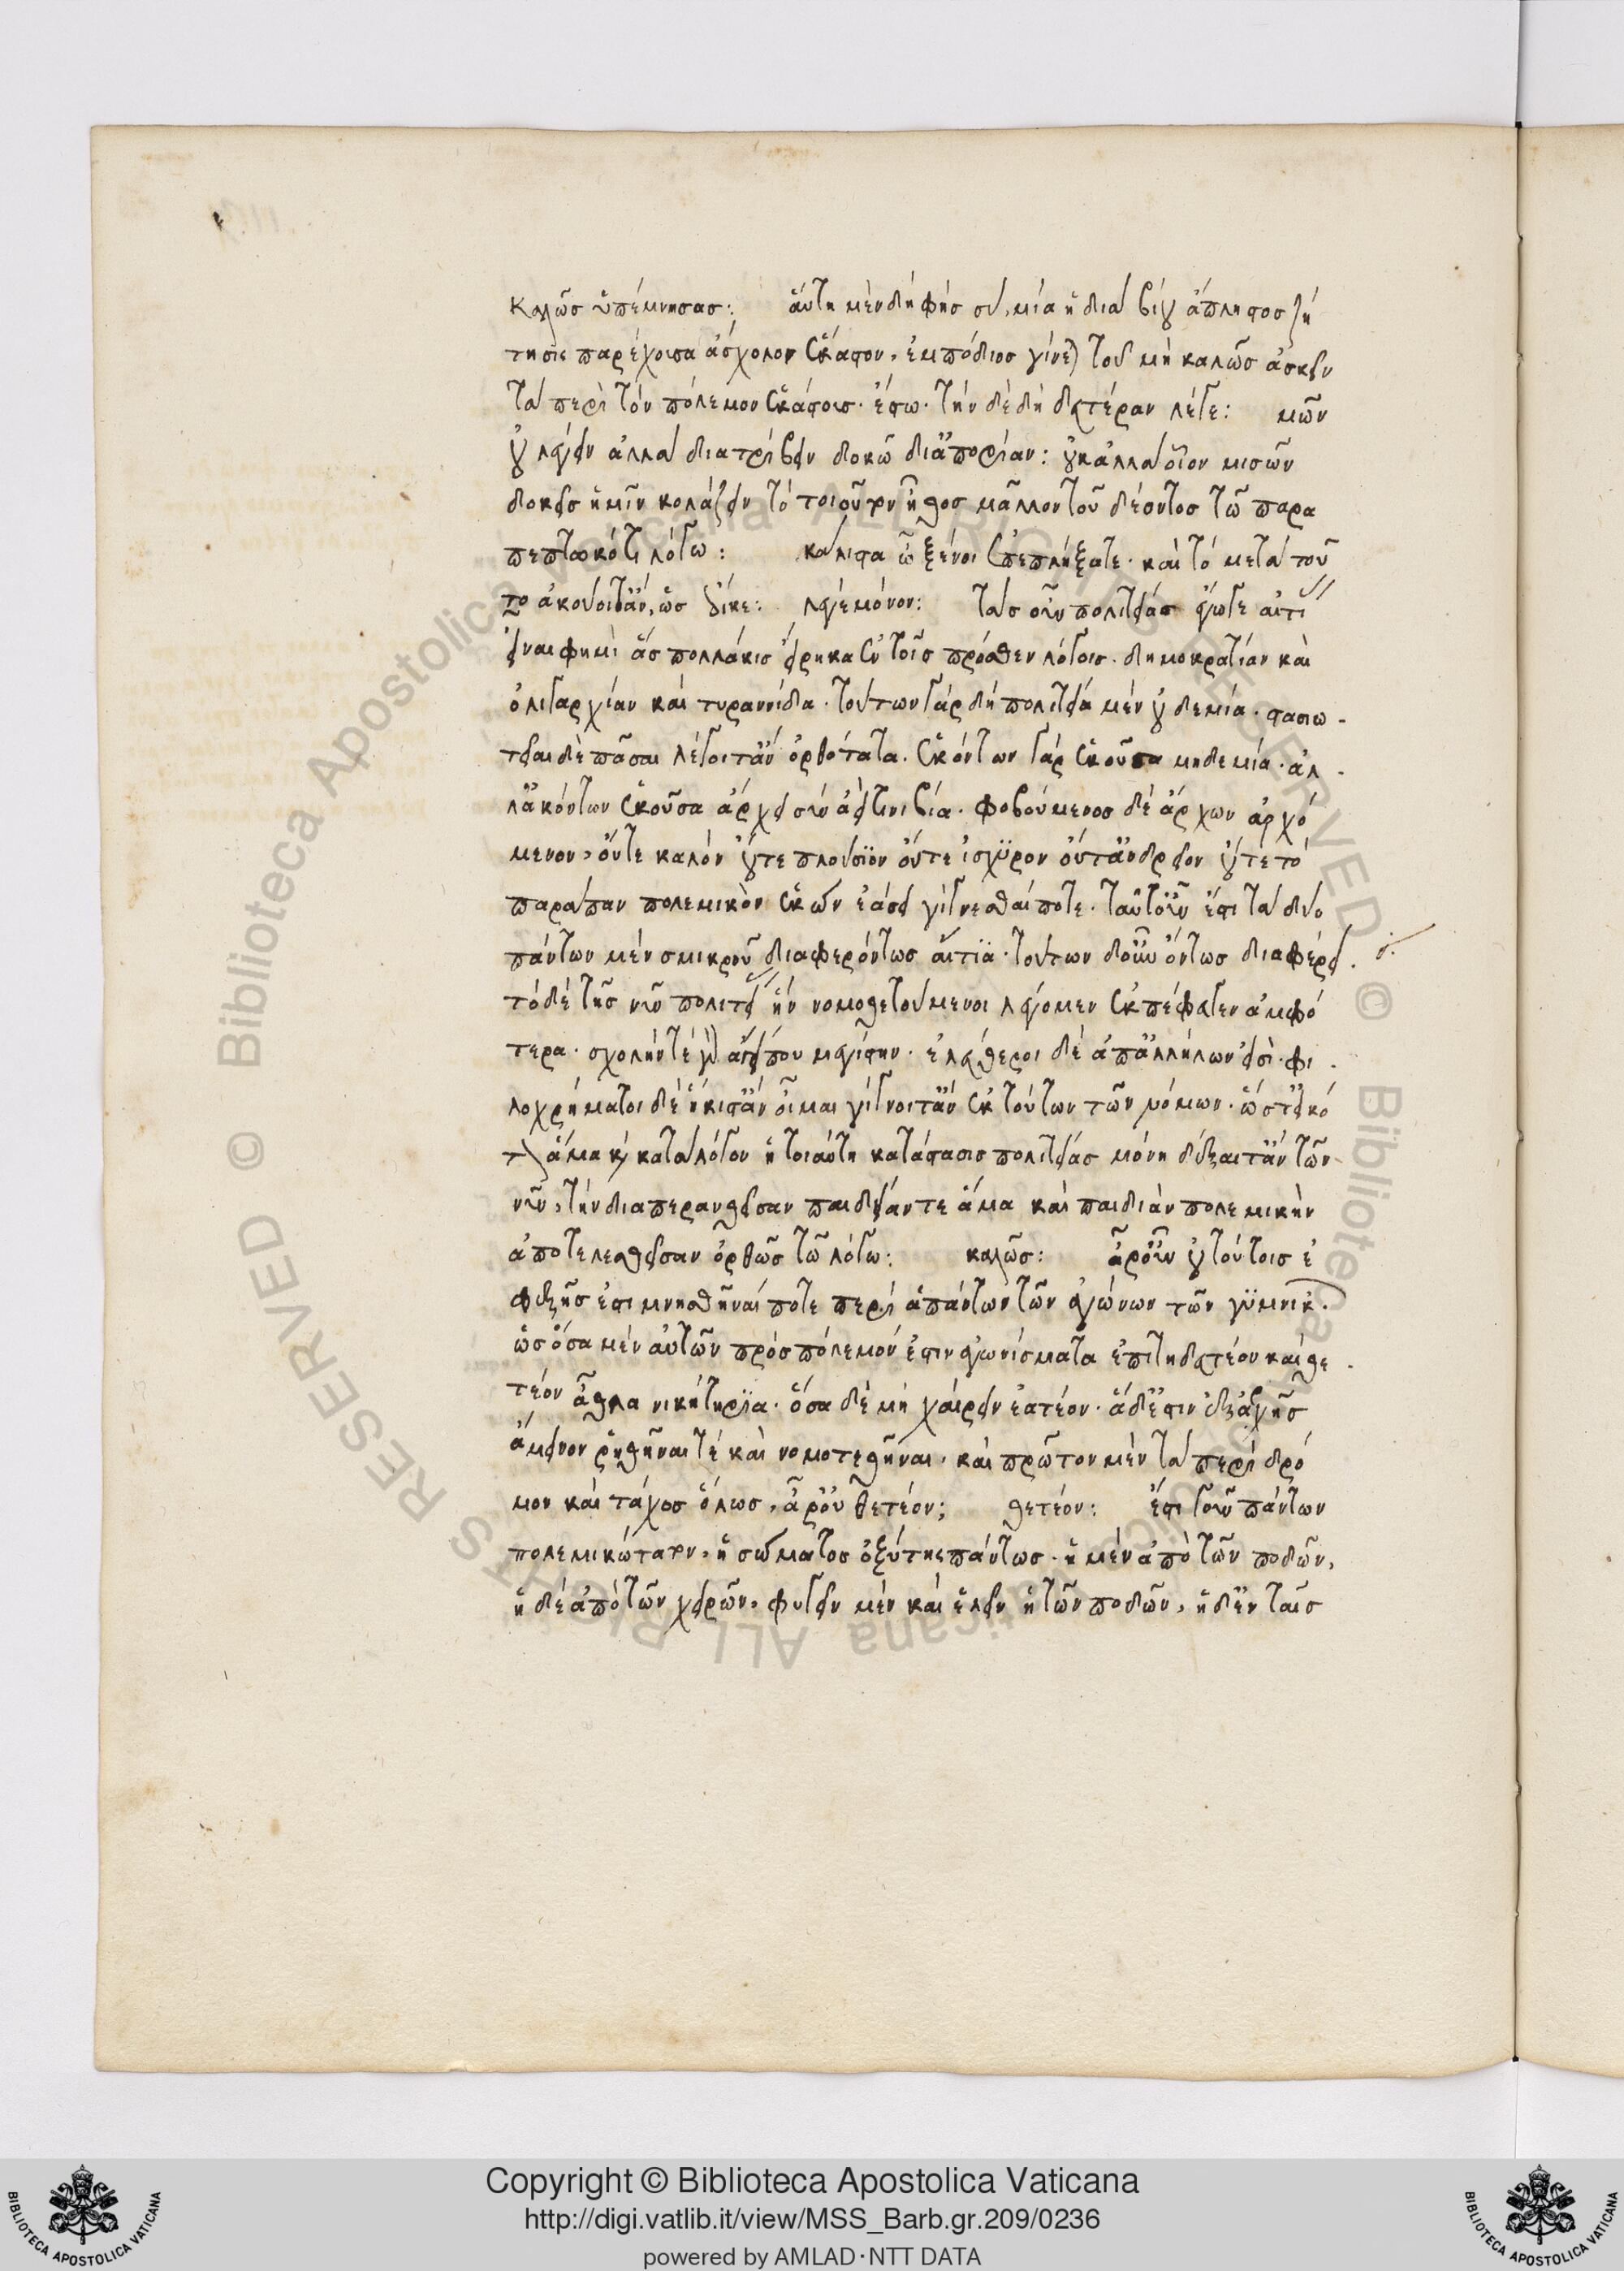 καλῶς ὑπέμνησας: αὕτη μὲν δὴ φὴς σὺ, μία ἡ διὰ βίου ἄπληστος ζή
τησις παρέχουσα ἄσχολον ἕκαστον, ἐμπόδιος γίνεται τοῦ μὴ καλῶς ἀσκεῖν
τὰ περὶ τὸν πόλεμον ἑκάστοις. ἔστω. τὴν δὲ δὴ δευτέραν λέγε: μῶν
οὐ λέγειν ἀλλὰ διατρίβειν δοκῶ διἀπορίαν: οὐκ ἀλλὰ οἷον μισῶν
δοκεῖς ἡμῖν κολάζειν τὸ τοιοῦτον ἦθος μᾶλλον τοῦ δέοντος τῶ παρα
πεπτωκότι λόγω: κάλλιστα ὦ ξένοι ἐπεπλήξατε. καὶ τὸ μετὰ τοῦ
το ἀκούοιτἂν, ὡς ἔοικε: λέγε μόνον: τὰς οὖν πολιτείας ἔγωγε αἰτί
εἶναι φημὶ ἃς πολλάκις εἴρηκα ἐν τοῖς πρόσθεν λόγοις. δημοκρατίαν καὶ
ὀλιγαρχίαν καὶ τυραννίδα. τούτων γὰρ δὴ πολιτεία μὲν οὐδεμία. στασιω
τεῖαι δὲ πᾶσαι λέγοιντἂν ὀρθότατα. ἑκόντων γὰρ ἑκοῦσα μηδεμία. ἀλ
λἀκόντων ἑκοῦσα ἄρχει σὺν ἀεί τινι βία. φοβούμενος δὲ ἄρχων ἀρχό
μενον, οὔτε καλὸν οὔτε πλούσιον οὔτε ἰσχυρὸν οὔτἀνδρεῖον οὔτε τὸ
παράπαν πολεμικὸν ἑκὼν ἐάσει γίγνεσθαί ποτε. ταῦτοὖν ἔστι τὰ δύο
πάντων μὲν σμικροῦ διαφερόντως αἴτια. τούτων δοὖν ὄντως διαφέρει.
τὸ δὲ τῆς νῦν πολιτεί ἣν νομοθετούμενοι λέγομεν ἐκπέφευγεν ἀμφό
τερα. σχολήν τε γὰρ ἄγει που μεγίστην. ἐλεύθεροι δὲ ἀπἀλλήλων εἰσὶ. φι
λοχρήματοι δὲ ἥκιστἂν οἶμαι γίγνοιντἂν ἐκ τούτων τῶν νόμων. ὥστεἰκό
τως ἅμα καὶ κατὰ λόγον ἡ τοιαύτη κατάστασις πολιτείας μόνη δέξαιτἂν τῶν
νῦν, τὴν διαπερανθεῖσαν παιδείαν τε ἅμα καὶ παιδιὰν πολεμικὴν
ἀποτελεσθεῖσαν ὀρθῶς τῶ λόγω: καλῶς: ἆροὖν οὐ τούτοις ἐ
φεξῆς ἐστι μνησθῆναί ποτε περὶ ἁπάντων τῶν ἀγώνων τῶν γυμνικ.
ὡς ὅσα μὲν αὐτῶν πρὸς πόλεμόν ἐστιν ἀγωνίσματα ἐπιτηδευτέον καὶ θε
τέον ἆθλα νικητήρια. ὅσα δὲ μὴ χαίρειν ἐατέον. ἃ δἔστιν ἐξἀρχῆς
ἄμεινον ῥηθῆναι τὲ καὶ νομοτεθῆναι. καὶ πρῶτον μὲν τὰ περὶ δρό
μον καὶ τάχος ὅλως, ἆροὖν θετέον; θετέον: ἔστι γοῦν πάντων
πολεμικώτατον, ἡ σώματος ὀξύτης πάντως. ἡ μὲν ἀπὸ τῶν ποδῶν,
ἡ δὲ ἀπὸ τῶν χειρῶν, φυγεῖν μὲν καὶ ἑλεῖν ἡ τῶν ποδῶν, ἡ δἐν ταῖς
Copyright © Biblioteca Apostolica Vaticana
http://digi.vatlib.it/view/MSS_Barb.gr.209/0236
powered by AMLAD·NTT DATA